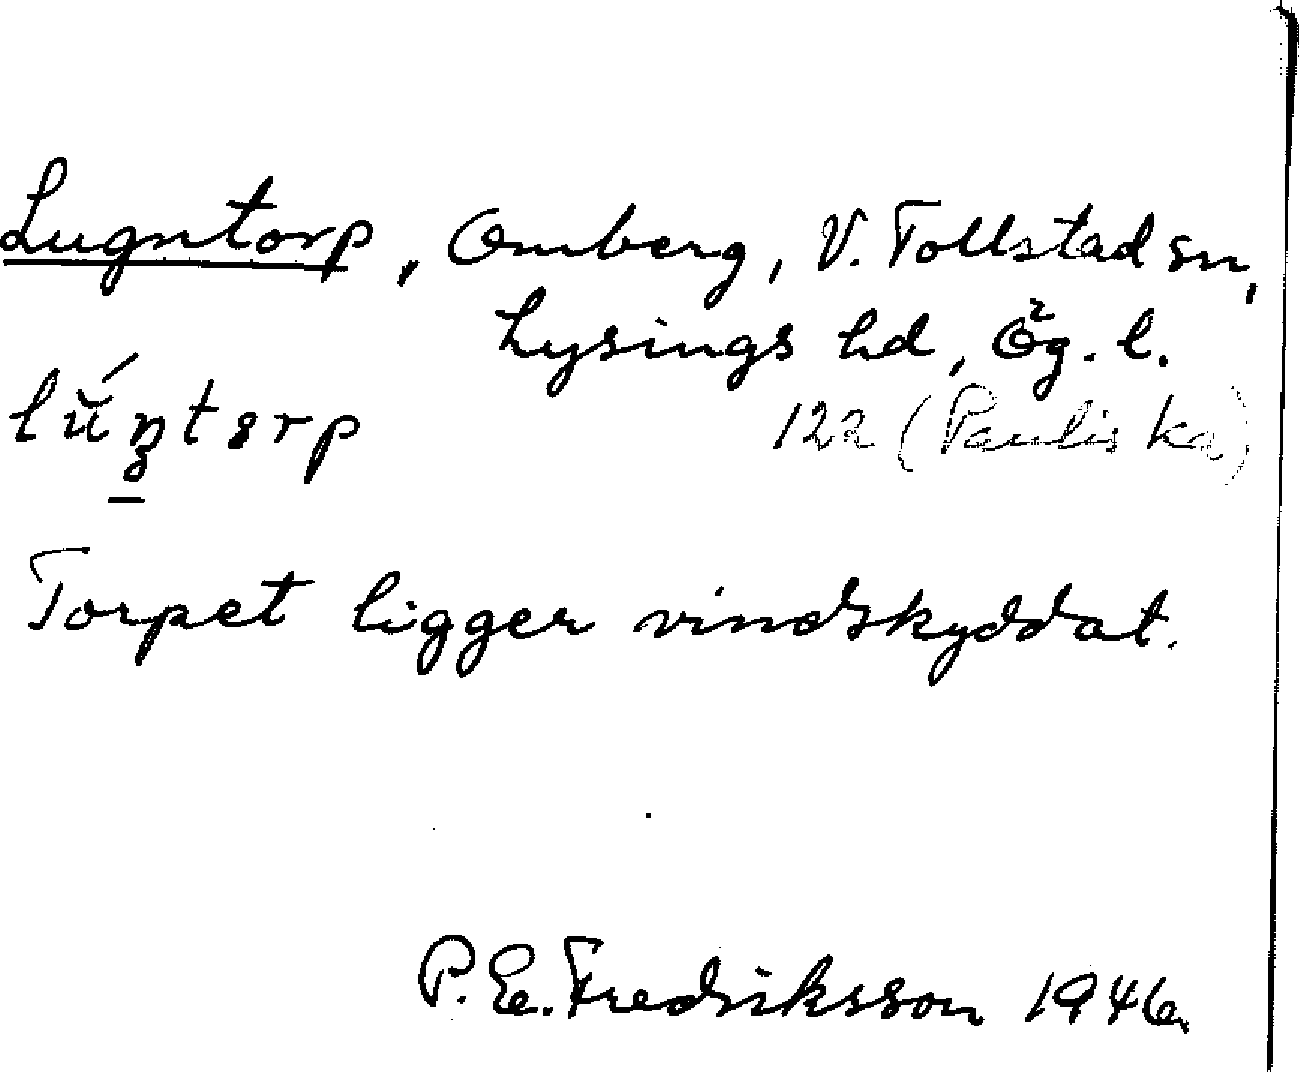 Lugntorp, Omberg, V. Tollstad sn,
Lysings hd, Ög. l.
122 (Pauliska)
Torpet ligger vindskyddat.
P. E. Fredriksson 1946.